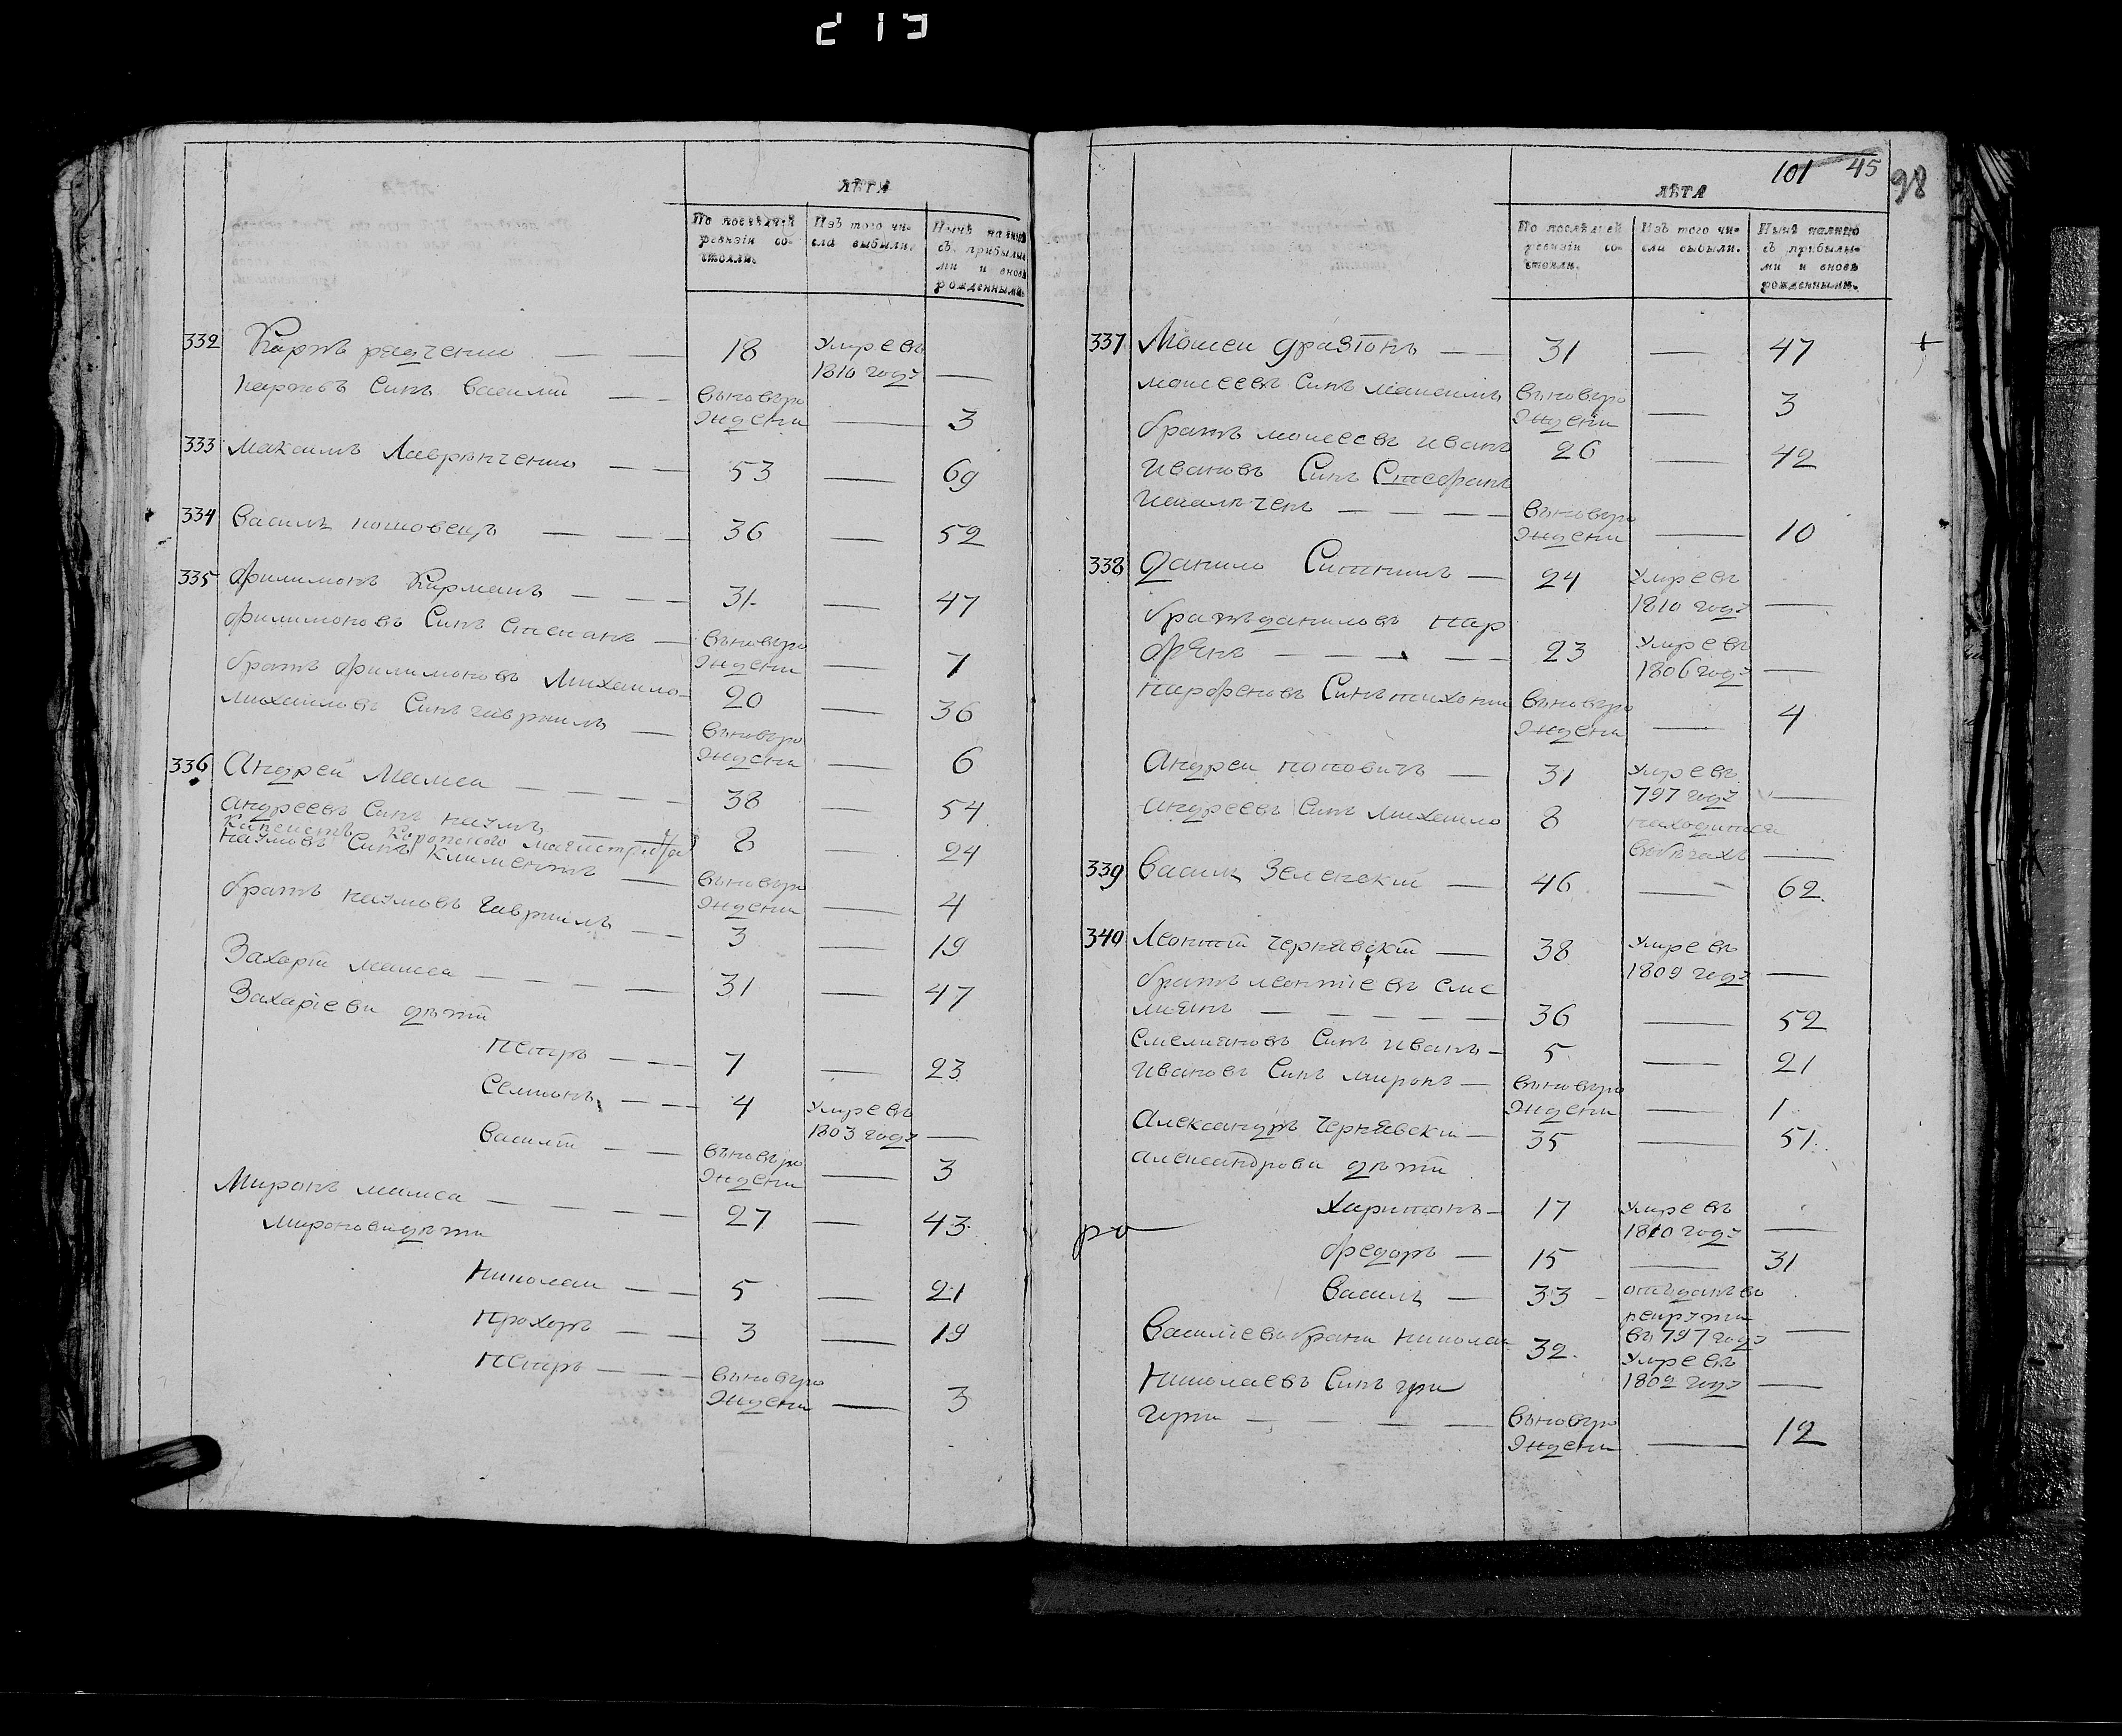 219
ЛѢТА
По послѣдней ревизіи состояли.
Изъ того числа выбыли.
Нынѣ налицо съ прибылыми и вновь рожденными.
332 Карпъ 18 Умре въ
1810 годѣ —
Карповъ Синъ Василій вьновьро
Ждени — 3
333 Максимъ Лаврѣнченко 53 — 69
334 Василь 36 — 52
335 Филимонъ Кирманъ 31 — 47
Филимоновъ Синъ Степанъ вьновьро
Ждени — 7
братъ Филимоновъ Михаило 20 — 36
Михаиловъ Синъ гавриилъ вьновьро
Ждени — 6
336 Андрей 38 — 54
Андреевъ Синъ наумъ 8 — 24
магистрата
наумовъ Синъ Климентъ вьновьро
Ждени — 4
братъ наумовъ гавриилъ 3 — 19
Захарій 31 — 47
Захаріеви дѣти
Петръ 7 — 23
Семионъ 4 Умре въ
1803 годѣ —
Василій вьновьро
Ждени — 3
Миронъ 27 — 43
Миронови дѣти
Николаи 5 — 21
Прохоръ 3 — 19
Петръ вьновьро
Ждени — 3
101 45 98
ЛѢТА
По послѣдней ревизіи состояли.
Изъ того числа выбыли.
Нынѣ налицо съ прибылыми и вновь рожденными.
337 Моисеи 31 — 47 +
моисеевъ Синъ вьновьро
Ждени — 3
братъ моисеевъ иванъ 26 — 42
Ивановъ Синъ Стефанъ
вьновьро
Ждени — 10
338 Данило 24 Умре въ
1810 годѣ —
братъ даниловъ пар
фѣнъ 23 Умре въ
1806 годѣ —
парфеновъ Синъ тихонъ вьновьро
Ждени — 4
Андреи поповичъ 31 Умре въ
797 годѣ —
андреевъ Синъ Михаило 8 находится
вьбѣгахъ —
339 Василь Зеленскій 46 — 62
340 Леонтій чернявскій 38 Умре въ
1809 годѣ —
братъ леонтіевъ еме
лиянъ 36 — 52
Емелияновъ Синъ иванъ 5 — 21
Ивановъ Синъ миронъ вьновьро
Ждени — 1
Александръ чернявски 35 — 51
александрови дѣти
Харитонъ 17 Умре въ
1810 годѣ —
Федоръ 15 — 31
Василь 33 отъданъ въ
рекрути
въ 797 годѣ —
Василіевъ братъ николаи 32 Умре въ
1802 годѣ —
Николаевъ Синъ гри
гори вьновьро
Ждени — 12